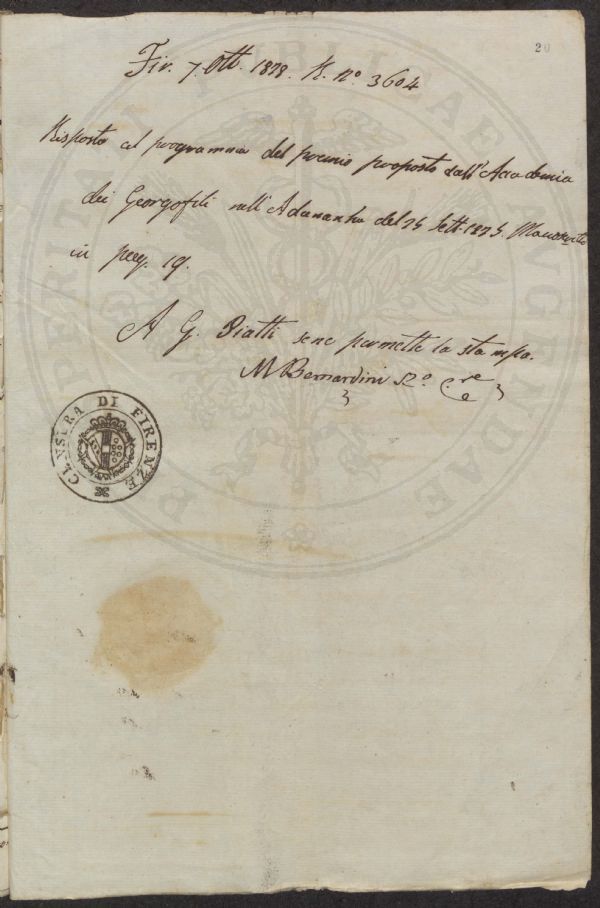 20
Fir. 7. Ott. 1828. R. N.º 3604
Risposta al programma del premio proposto dall'Accademia
dei Georgofili nell'Adunanza del Sett. Manoscritto
in pag. 19.
A G. Piatti se ne permette la stampa.
M Bernardini
CENSURA DI FIRENZE
PROSPERITATI PUBLICAE AUGENDAE